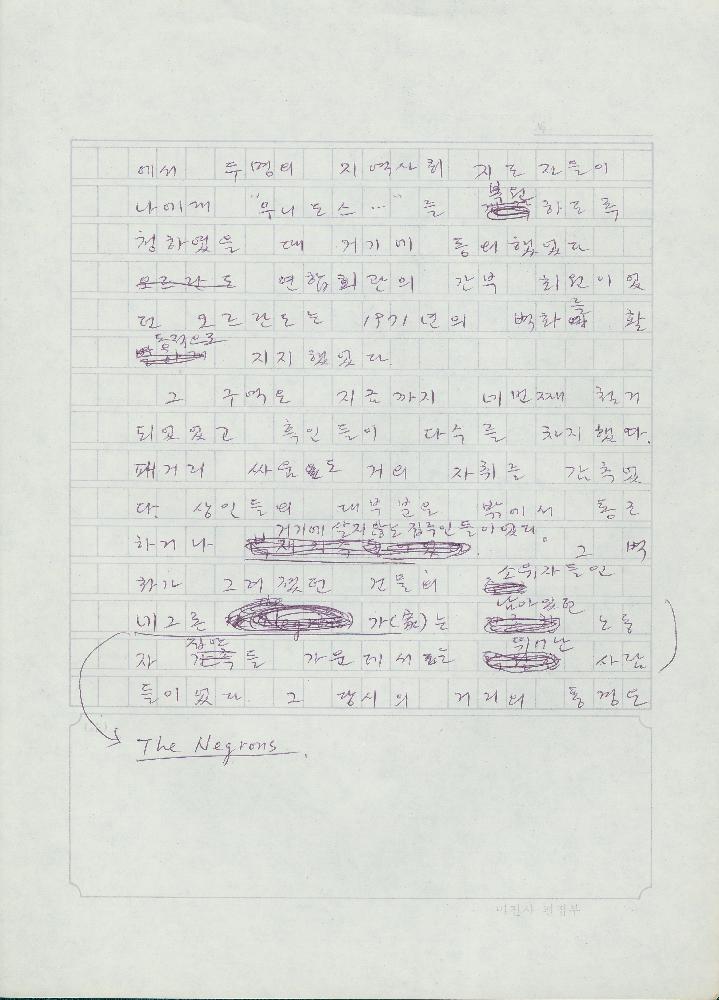 에서 두명의 지역사회 지도 자들이
나에게 "우니도스…" 를 복원 하도록
청하였을 때 거기에 동의했었다
오르란도 연합회관의 간부 회원이었
던 오르란도는 1971년의 벽화를 활
동적으로 지지했었다.
그 구역은 지금까지 네번째 철거
되었었고 흑인들이 다수를 차지했다.
패거리 싸움도 거의 자취를 감추었
다. 상인들의 대부분은 밖에서 통근
하거나 거기에 살지않는 집주인들이었다. 그 벽
화가 그려졌던 건물의 소유자들인
네그론 Negrons 가(家)는 남아있던 노동
자 집단들 가운데서 뛰어난 사람
들이었다. 그 당시의 거리의 풍경은
The Negrons.
미진사 편집부